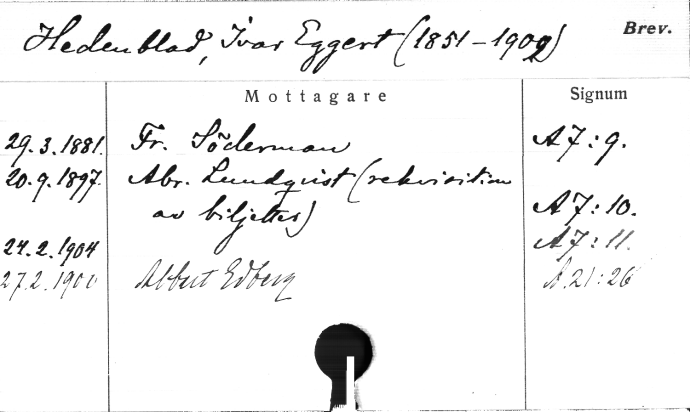 Hedenblad, Ivar Eggert (1851-1909) Brev.
Mottagare Signum
29.3.1881. Fr. Söderman A7:9.
20.9.1897. Abr. Lundqvist (rekvisition
av biljetter) A7:10.
24.2.1904 A7:11.
27.2. Albert Edberg A.21:26